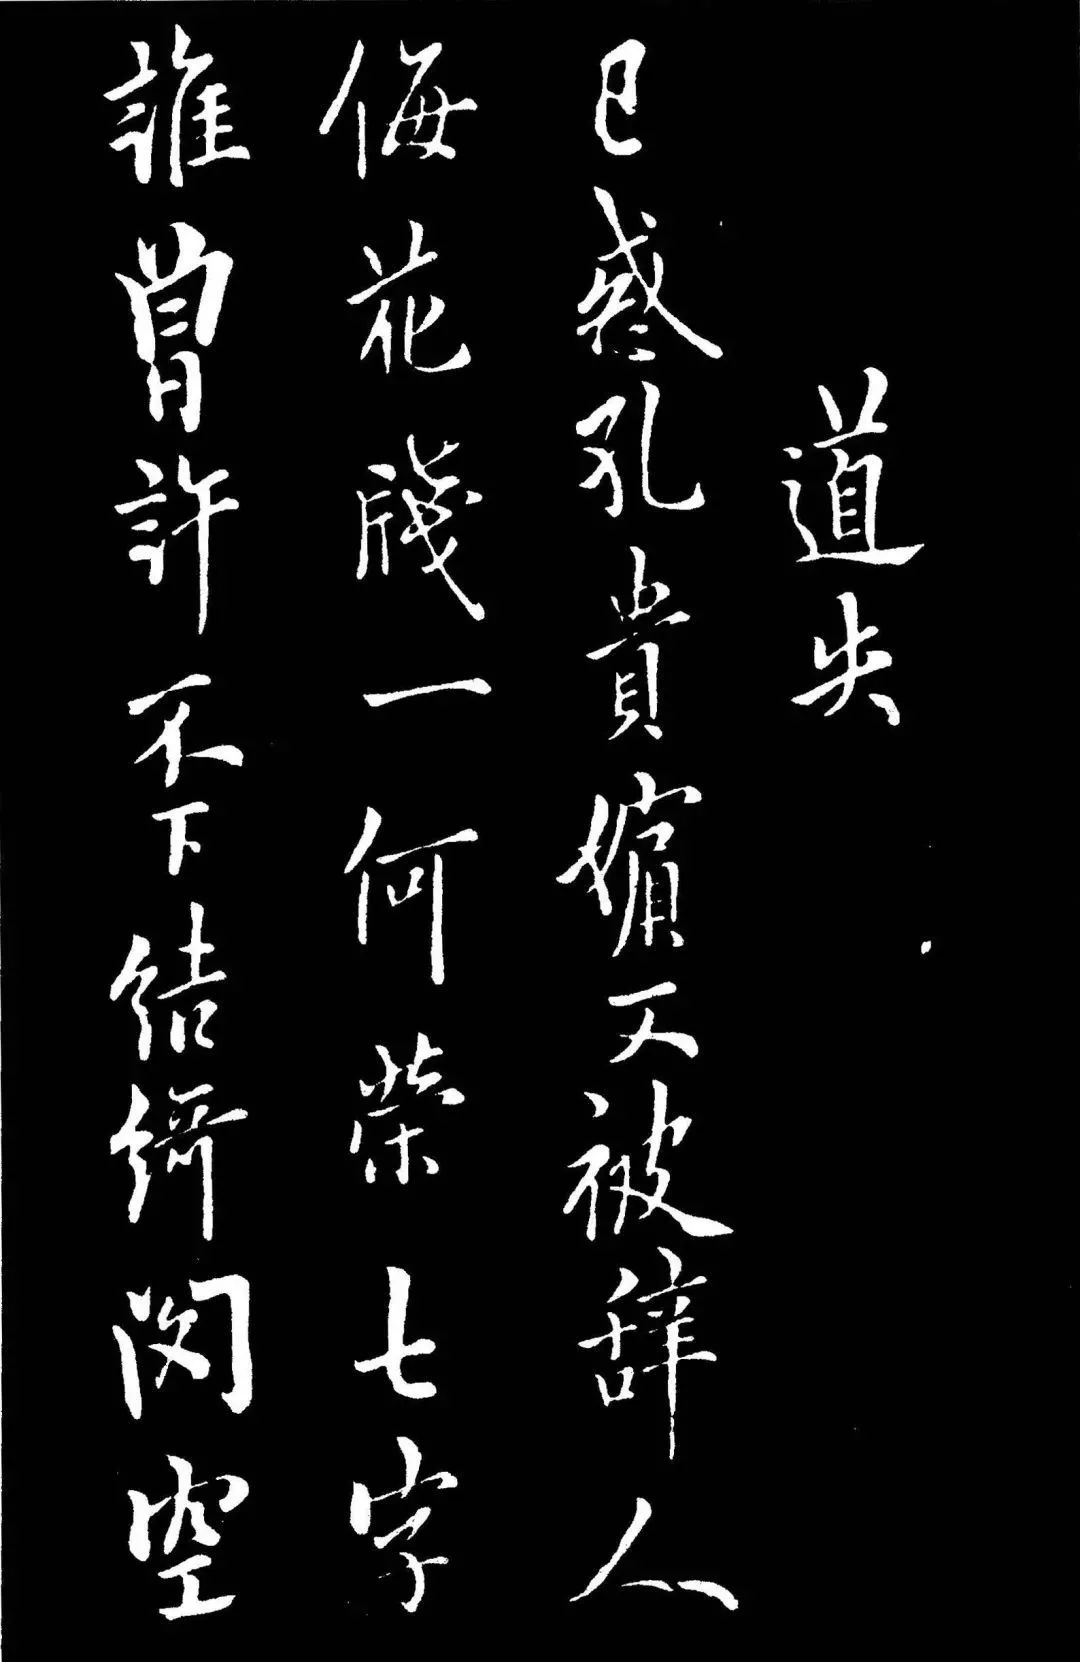 道失
已惑孔貴嬪又被辞人
侮花牋一何榮七字
誰曾許不下結綺閣空